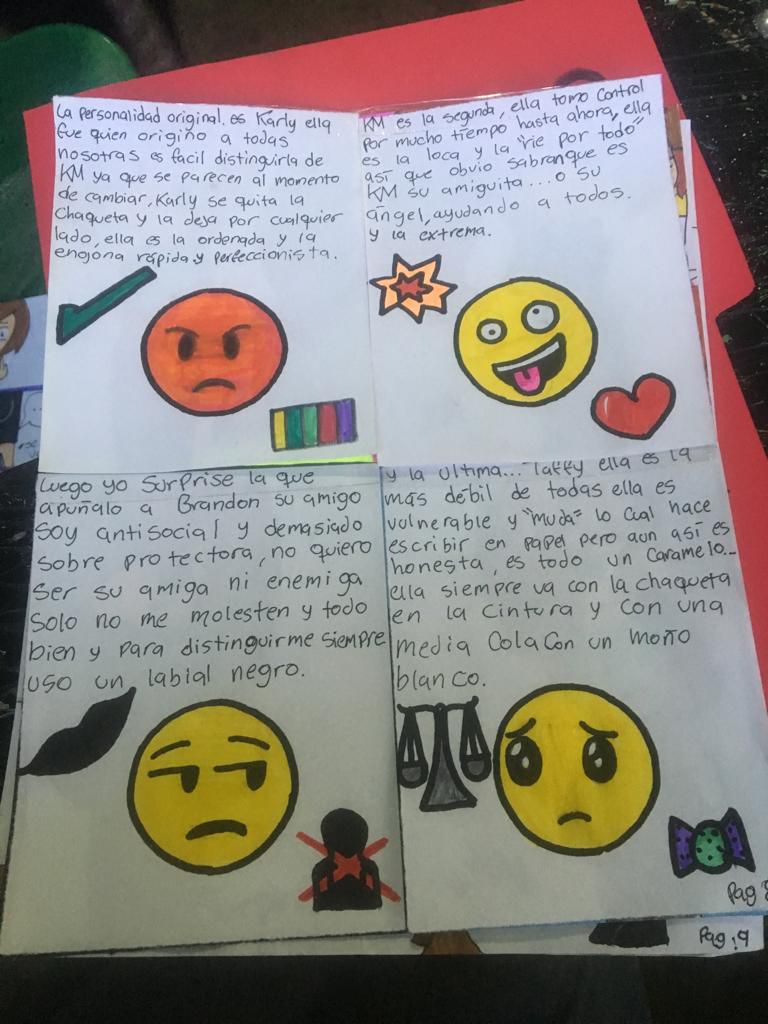 La personalidad original. es Karly ella
fue quien origiño a todas
nosotras es facil distinguirla de
KM ya que se parecen al momento
de cambiar, Karly se quita la
chaqueta y la deja por cualquier
lado, ella es la ordenada y la
enojona rápida y perfeccionista.
KM es la segunda, ella tomo control
por mucho tiempo hasta ahora, ella
es la loca y la "rie por todo"
así que obvio sabran que es
KM su amiguita... o su
ángel, ayudando a todos.
y la extrema.
luego yo Surprise la que
apuñalo a Brandon su amigo
soy antisocial y demasiado
sobre protectora, no quiero
ser su amiga ni enemiga
solo no me molesten y todo
bien y para distinguirme siempre
uso un labial negro.
y la ultima... Taffy ella es la
más débil de todas ella es
vulnerable y "muda" lo cual hace
escribir en papel pero aun así es
honesta, es todo un caramelo...
ella siempre va con la chaqueta
en la cintura y con una
media cola con un moño
blanco.
Pag
Pag:9